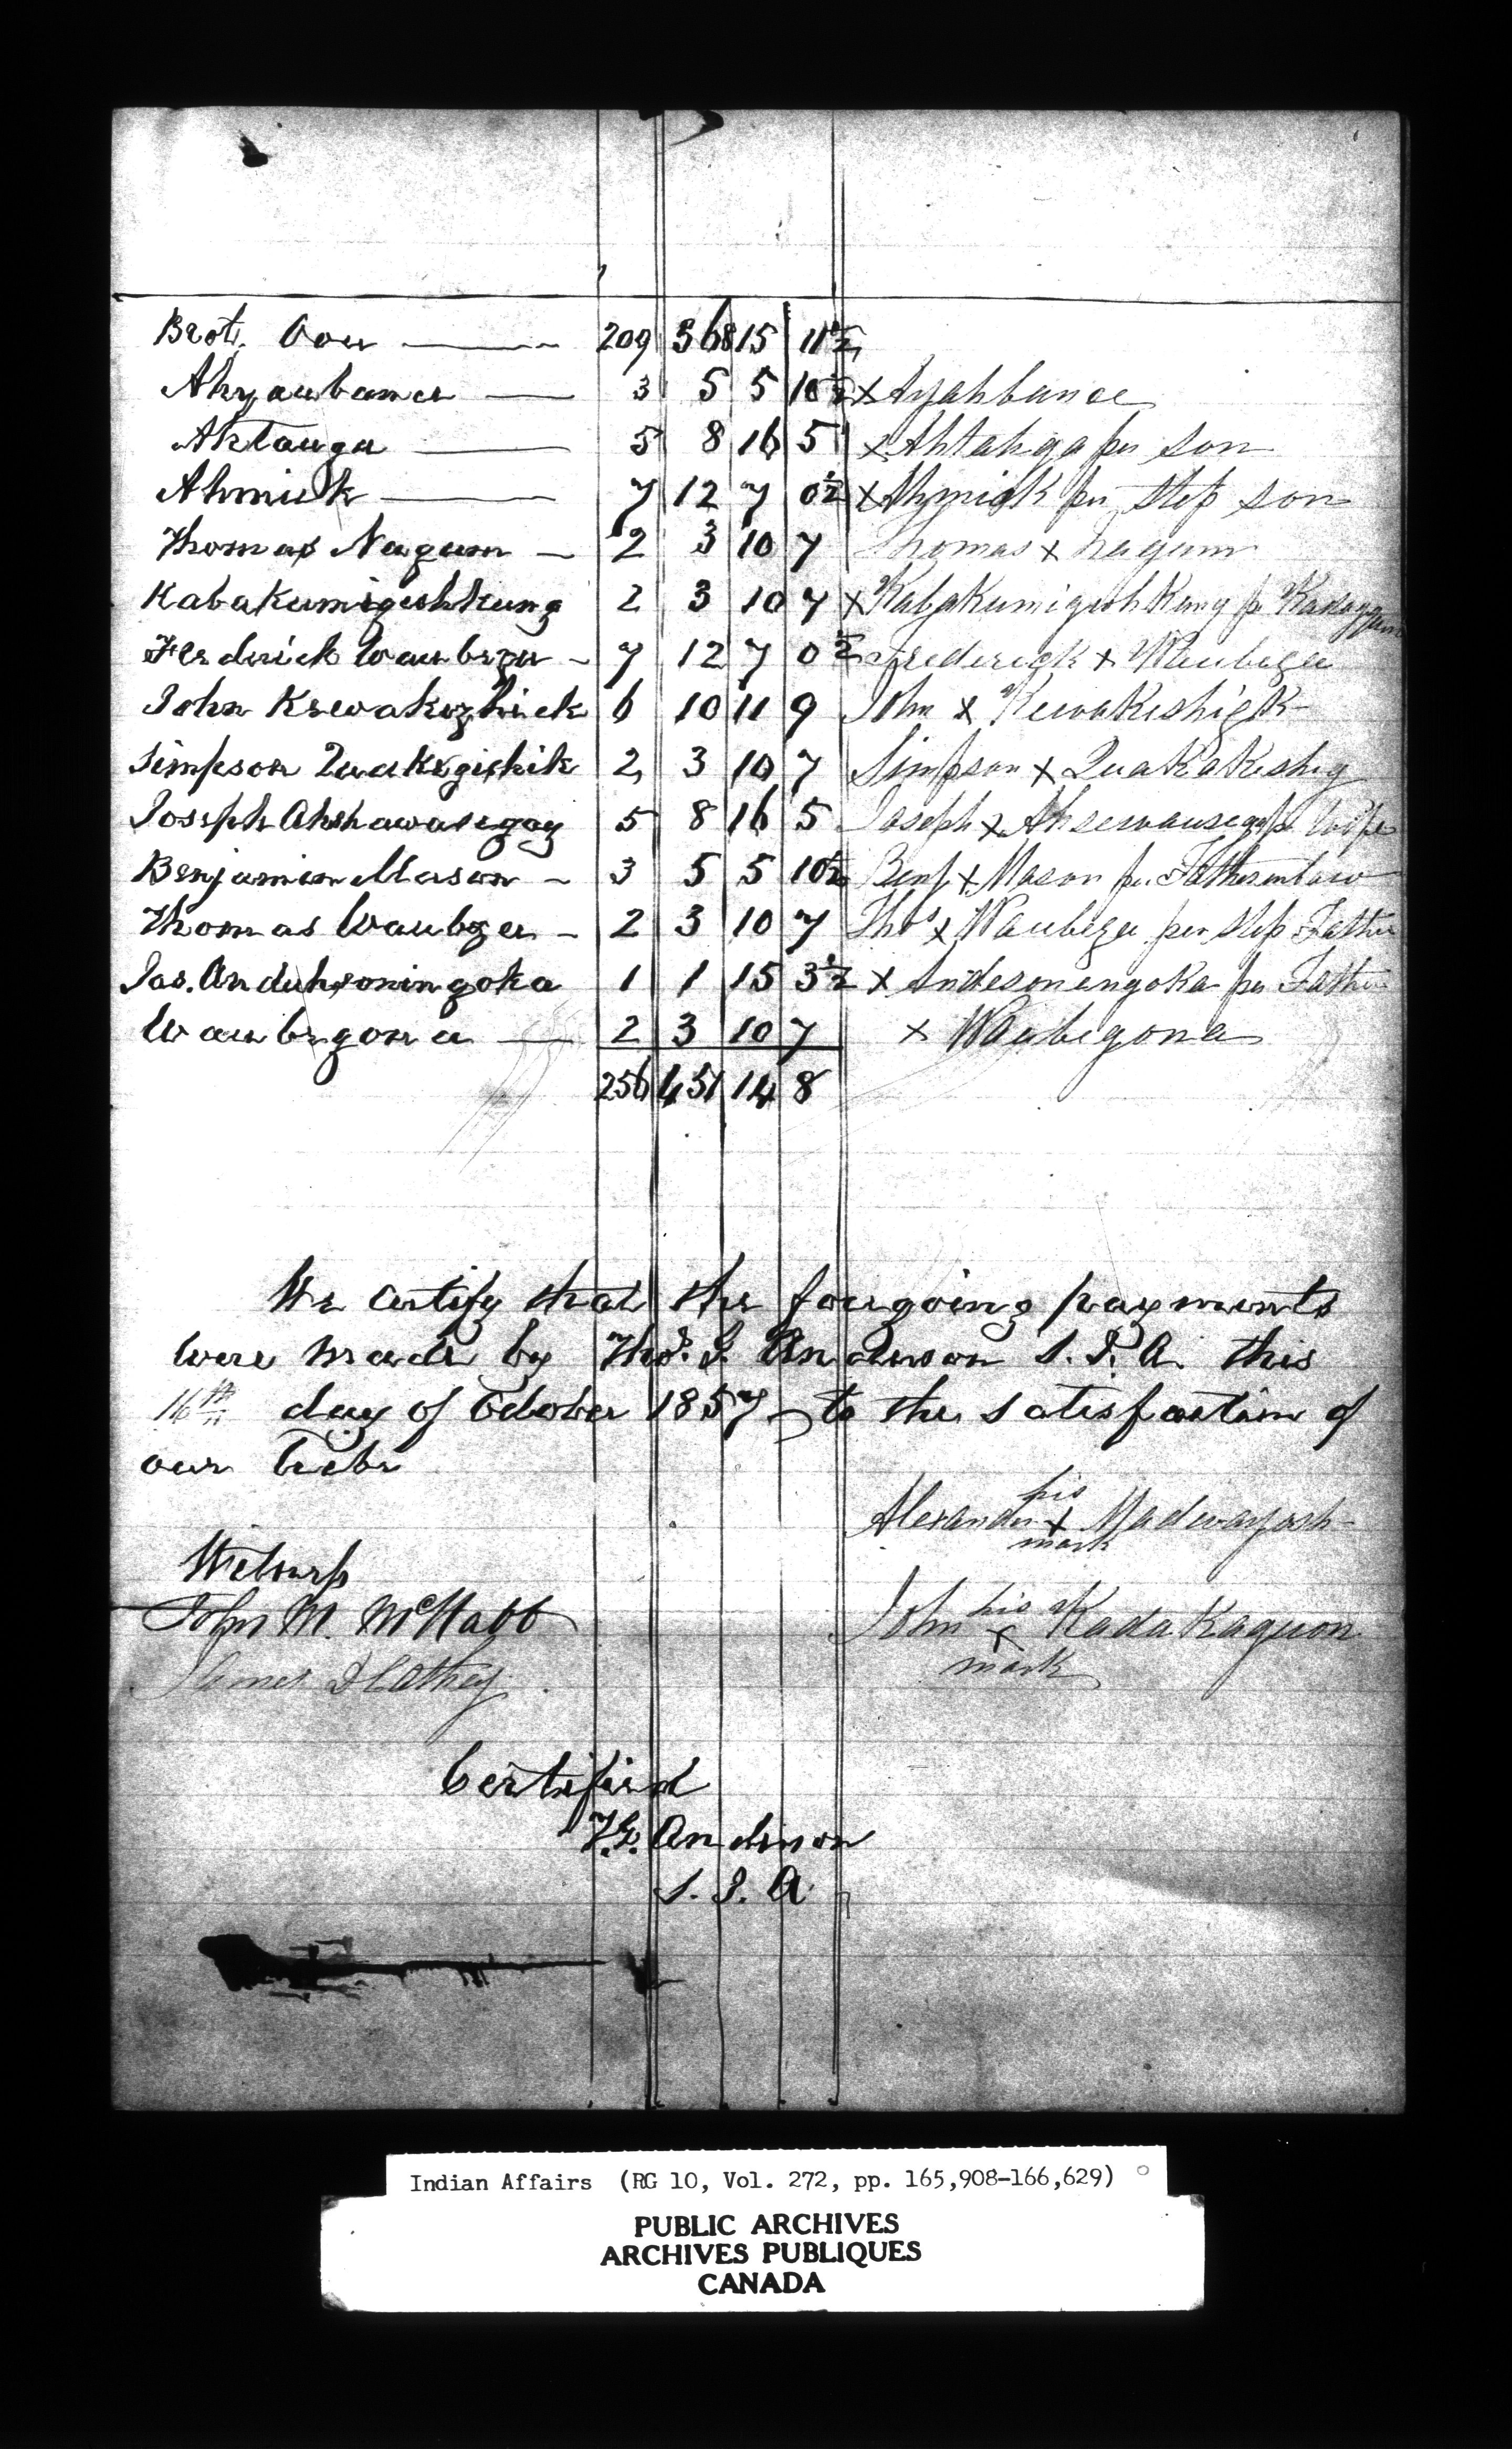 Brot. Over 209 368 15 11½
Ahyaubance 3 5 5 10½ x Ayahbance
Aktauga 5 8 16 5 x Ahtahga per son
Ahmick 7 12 7 0½ x Ahmick per step son
Thomas Nagum 2 3 10 7 Thomas x Nagum
Kabakumigishkung 2 3 10 7 x Kabakumigishkung p
Frederick Waubeze 7 12 7 0½ Frederick x Waubeze
John Kewakezhick 6 10 11 9 John x Kewakeshigk
Simpson Quakegishik 2 3 10 7 Simpson x Quakakeshig
Joseph Ahshawasegay 5 8 16 5 Joseph x Wife
Benjamin Mason 3 5 5 10½ Benj x Mason per Father in law
Thomas Waubeze 2 3 10 7 Thos x Waubeze per Step Father
Jas. Anduhsoningoka 1 1 15 3½ x Andesonengoka per Father
Waubegona 2 3 10 7 x Waubegona
256 451 14 8
We certify that the foregoing payments
were made by Thos. G. Anderson S. I. A. this
16th day of October 1857 to the satisfaction of
our Tribe
Alexander his x mark Madwayosh
Witness
John M. McNabb
John his x mark Kadakaguon
James
Certified
T.G. Anderson
S. I. A
Indian Affairs (RG 10, Vol. 272, pp. 165,908-166,629)
PUBLIC ARCHIVES
ARCHIVES PUBLIQUES
CANADA